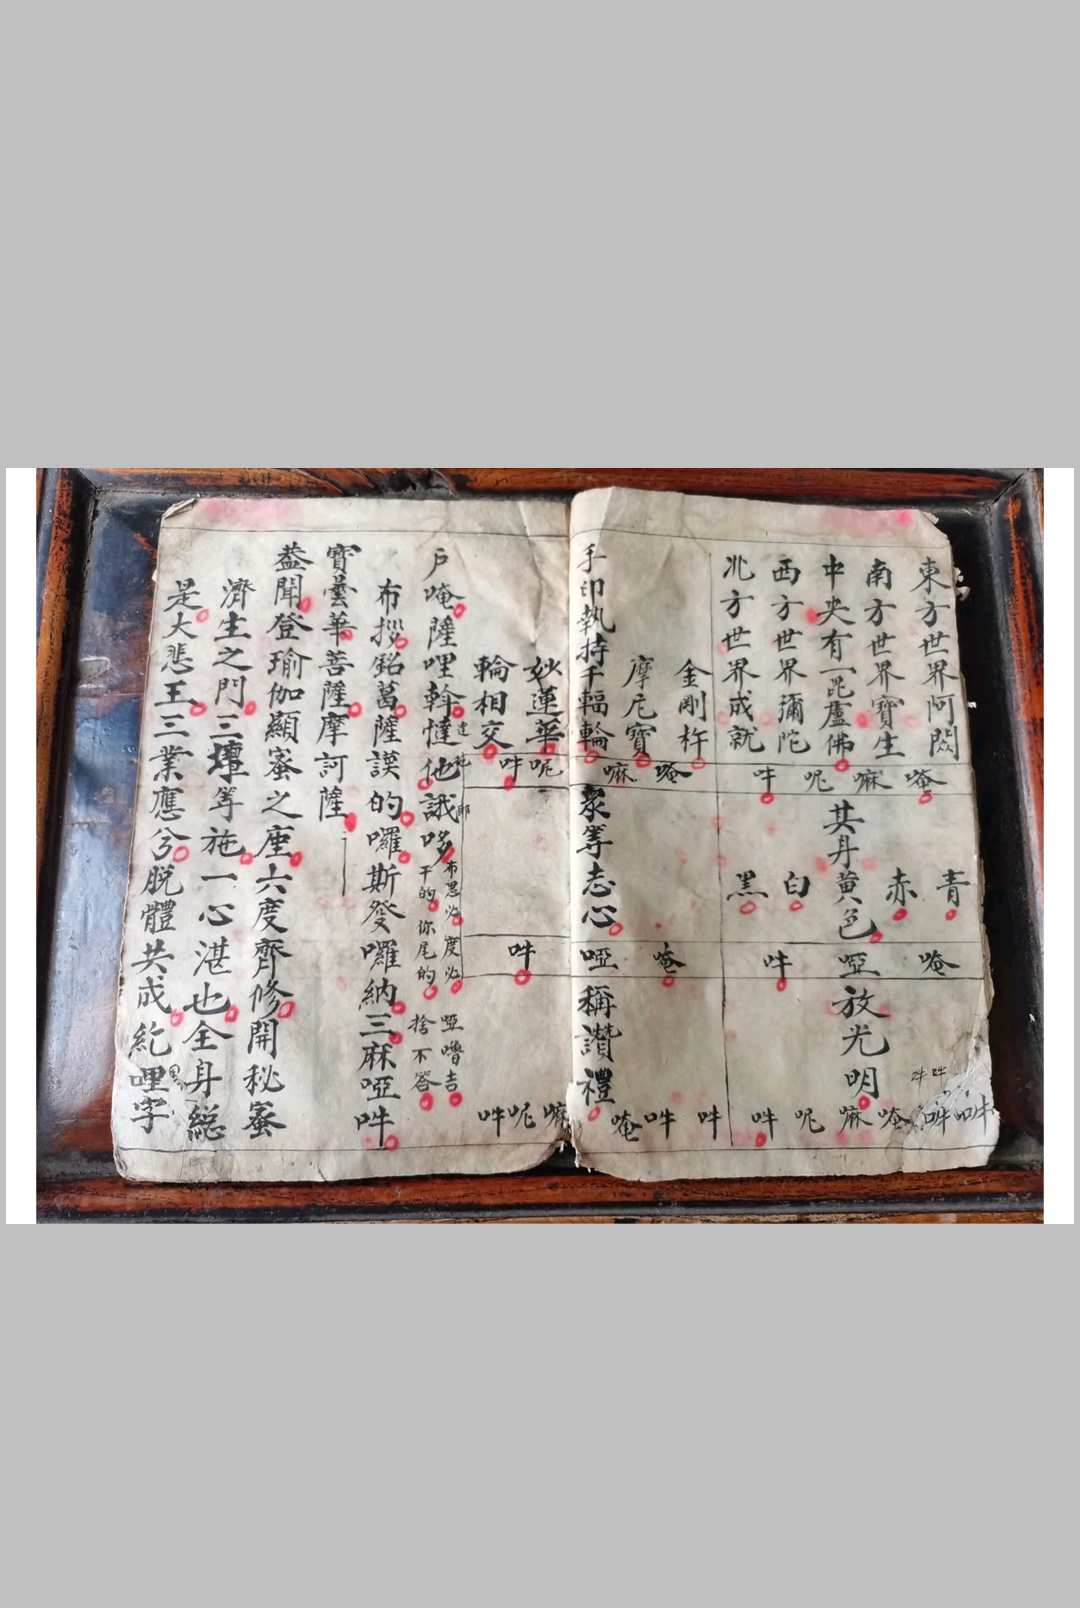 東方世界阿閦
南方世界寶生
中央有一毘盧佛
西方世界彌陀
北方世界成就
唵
嘛
呢
吽
青
赤
其身黃色
白
黑
唵
啞
吽
放光明
吽吽
吽
吽
唵
嘛
呢
吽
金剛杵
摩尼寶
手印執持千輻輪
妙蓮華
輪相交
唵
嘛
呢
吽
眾等志心
唵
啞
吽
稱讚禮
吽
吽
唵
嘛
呢
吽
戶唵薩哩斡怛他誐哆
達
陀
耶
布思必度必
干的你尾的
啞嚕吉
捨不答
布拶銘葛薩謨的囉斯發囉納三麻啞吽
寶曇華菩薩摩訶薩
葢聞登瑜伽顯蜜之座六度齊修開秘蜜
濟生之門三壇等施一心湛也全身総
是大悲王三業應兮脫體共成紇哩字